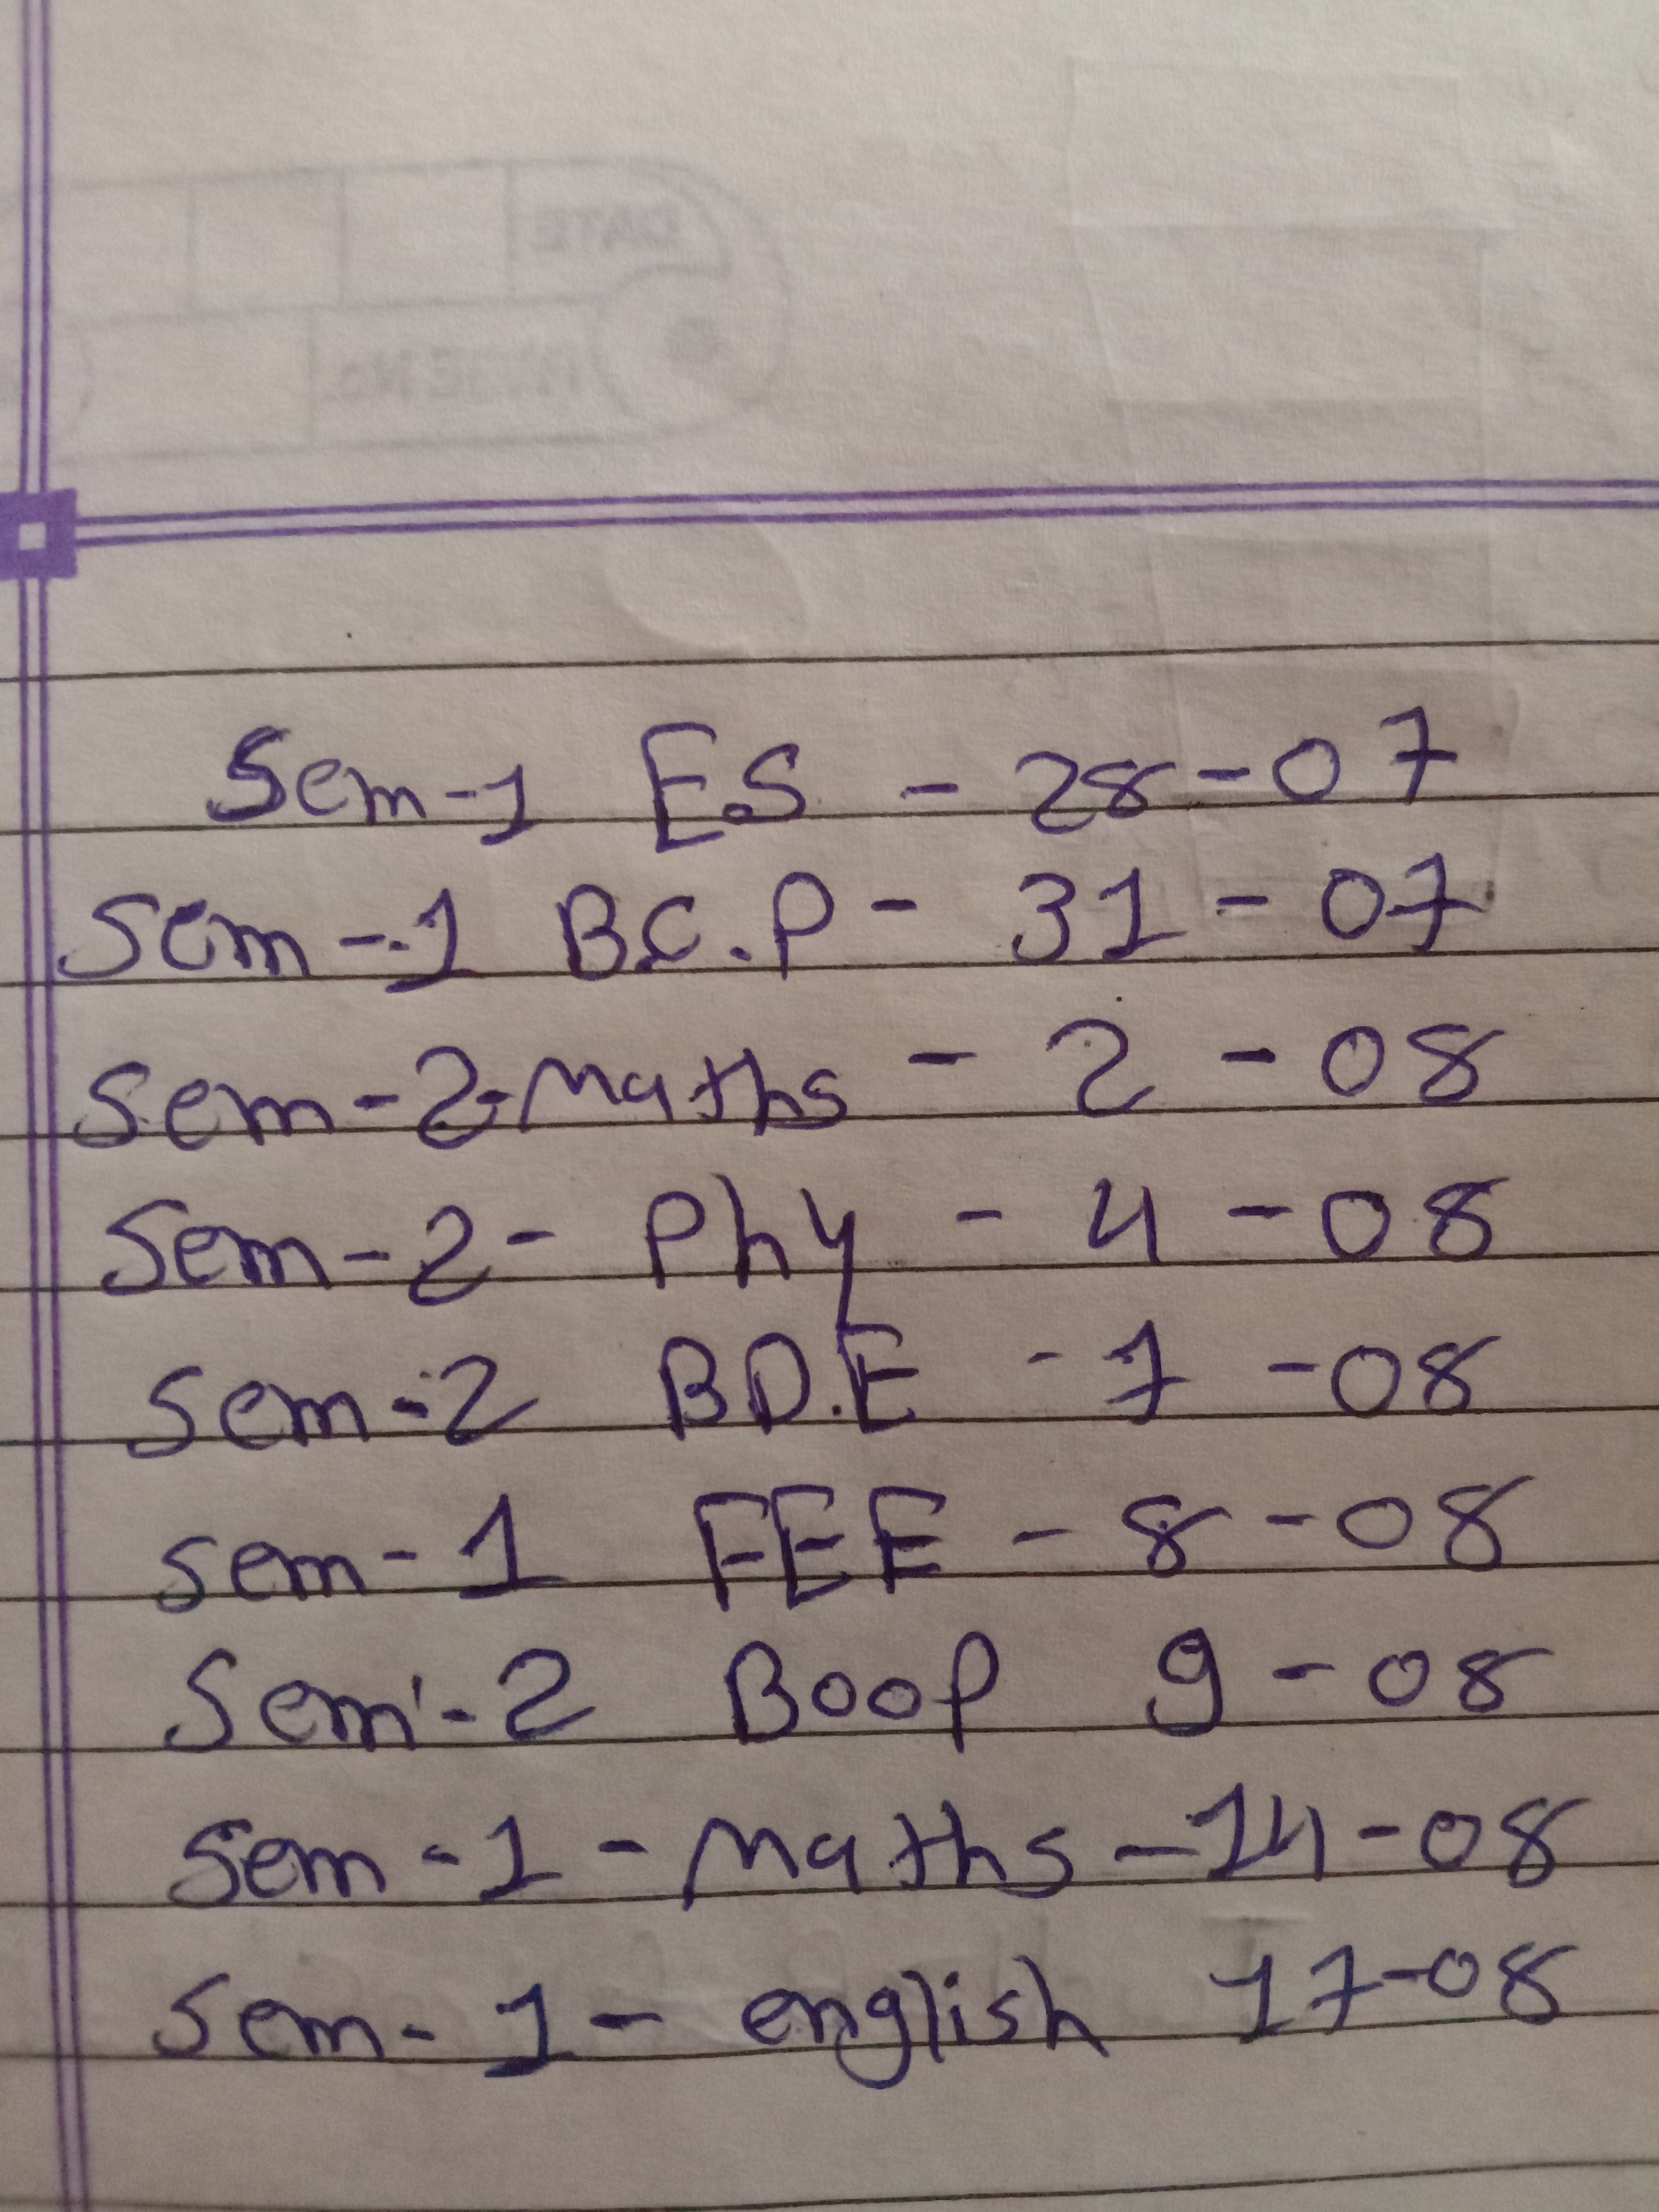 Sem-1 E.S - 28-07
Sem-1 B.C.P - 31 - 07
Sem-2-Maths - 2 - 08
Sem-2- Phy - 4 - 08
Sem-2 BD.E - 7 - 08
Sem-1 FEE - 8-08
Sem-2 BooP 9-08
Sem-1-Maths-14-08
Sem-1- english 17-08
DATE
PAGE No.